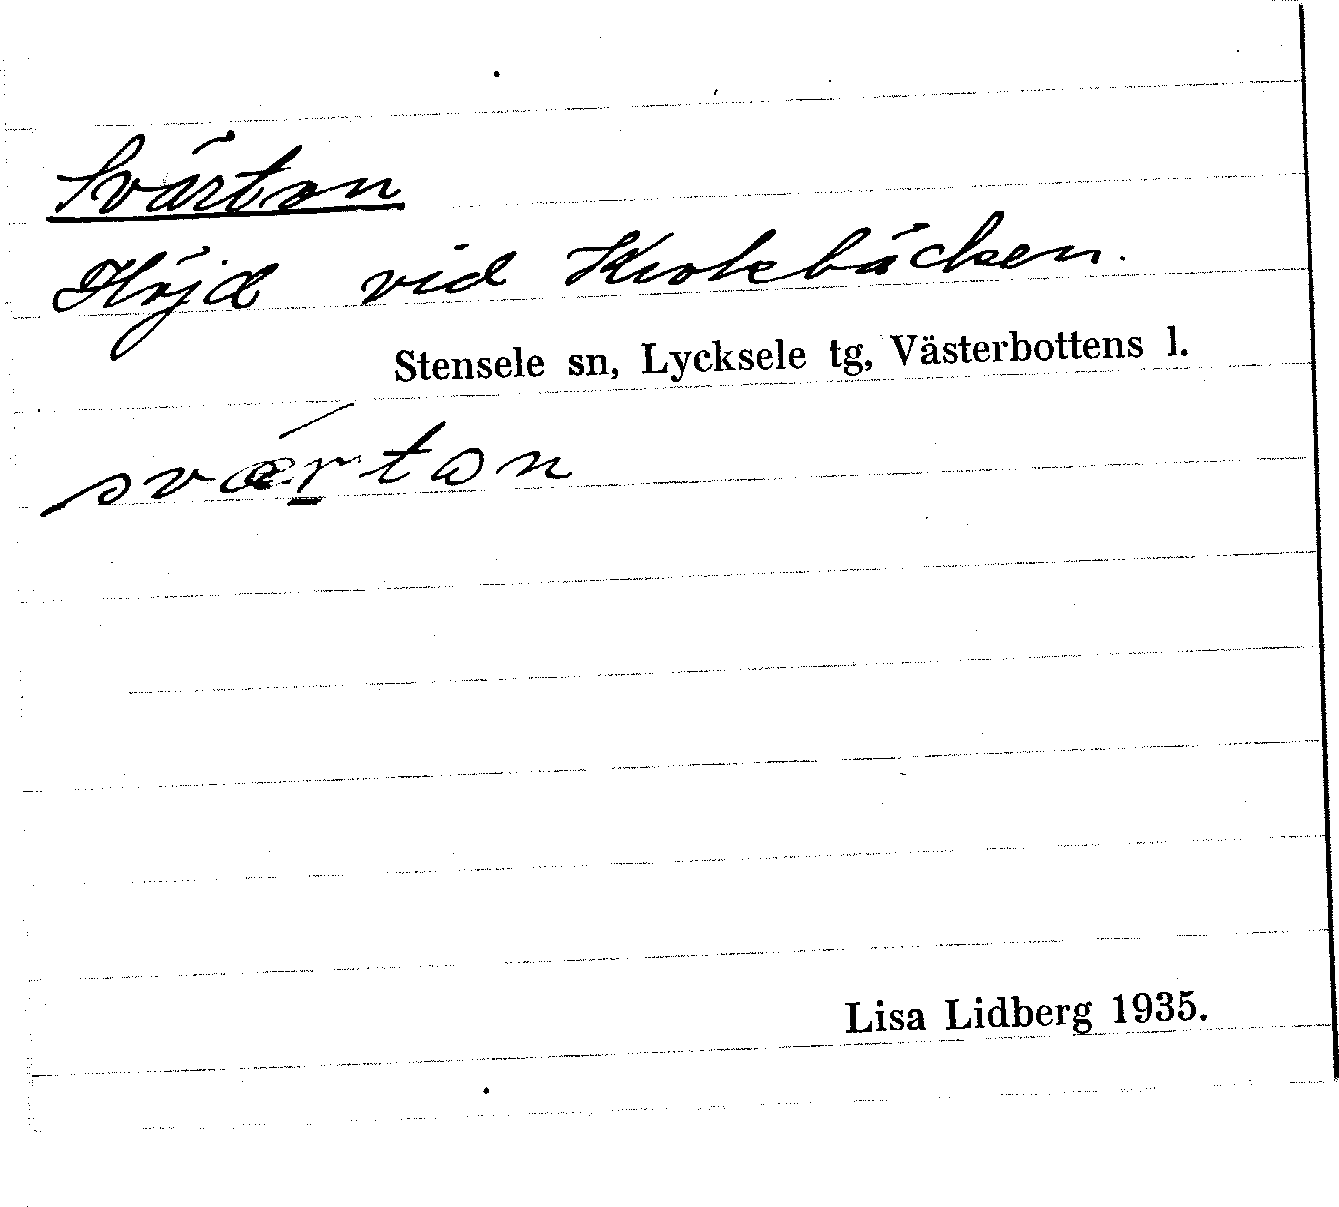 Svärton
Höjd vid Krokbäcken.
Stensele sn, Lycksele tg, Västerbottens l.
svær̲ton
Lisa Lidberg 1935.